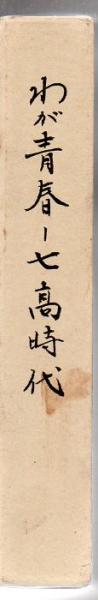 わが青春ー七高時代